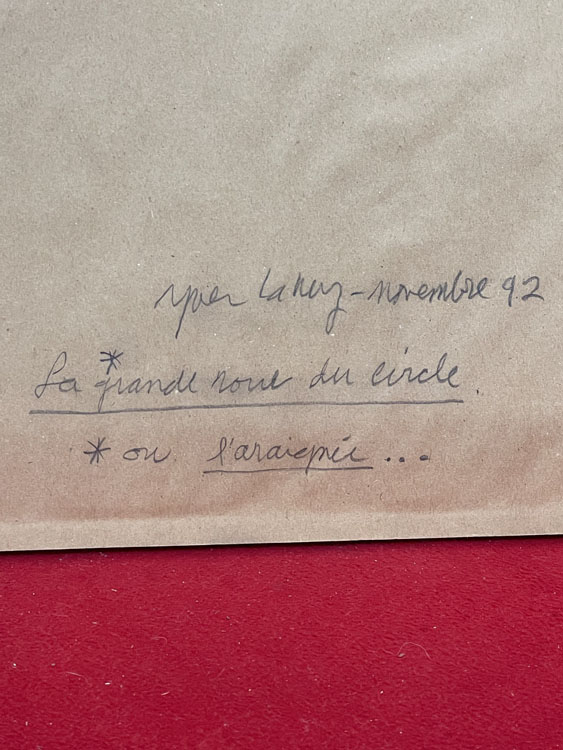 Yves Lahey - novembre 92
La *grande roue du circle.
* ou l'araignée...